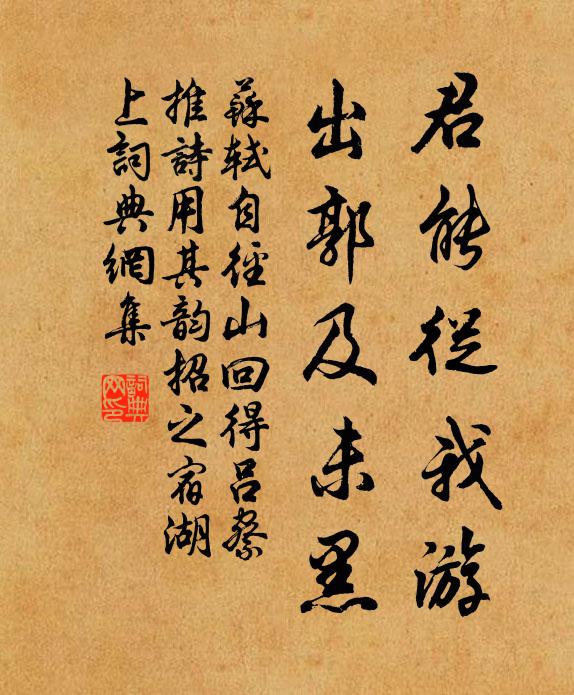 君能從我游
出郭及未黑
蘇軾自徑山回得呂察
推詩用其韵招之宿湖
上詞典網集
詞典
網印